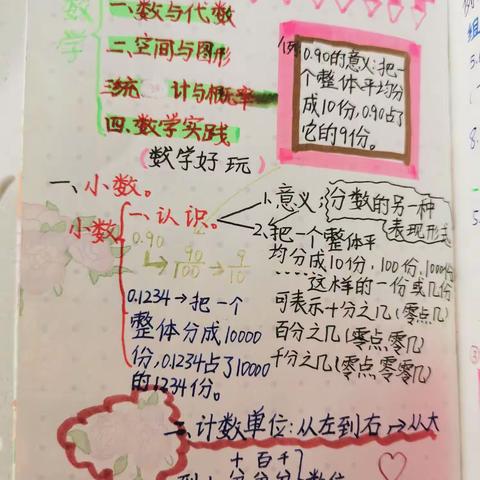 数学
一.数与代数
二.空间与图形
三.统计与概率
四.数学实践
(数学好玩)
例
0.90的意义:把一
个整体平均分
成10份,0.90占了
它的9份。
一、小数。
小数
一、认识。
0.90
90/100
9/10
0.1234→把一个
整体分成10000
份,0.1234占了10000
的1234份。
1.意义:分数的另一种
表现形式
2.把一个整体平
均分成10份,100份,1000份
……这样的一份或几份
可表示十分之几(零点几)
百分之几(零点零几)
千分之几(零点零零几)
二、计数单位:从左到右,→从大
十百千
分分分
数位